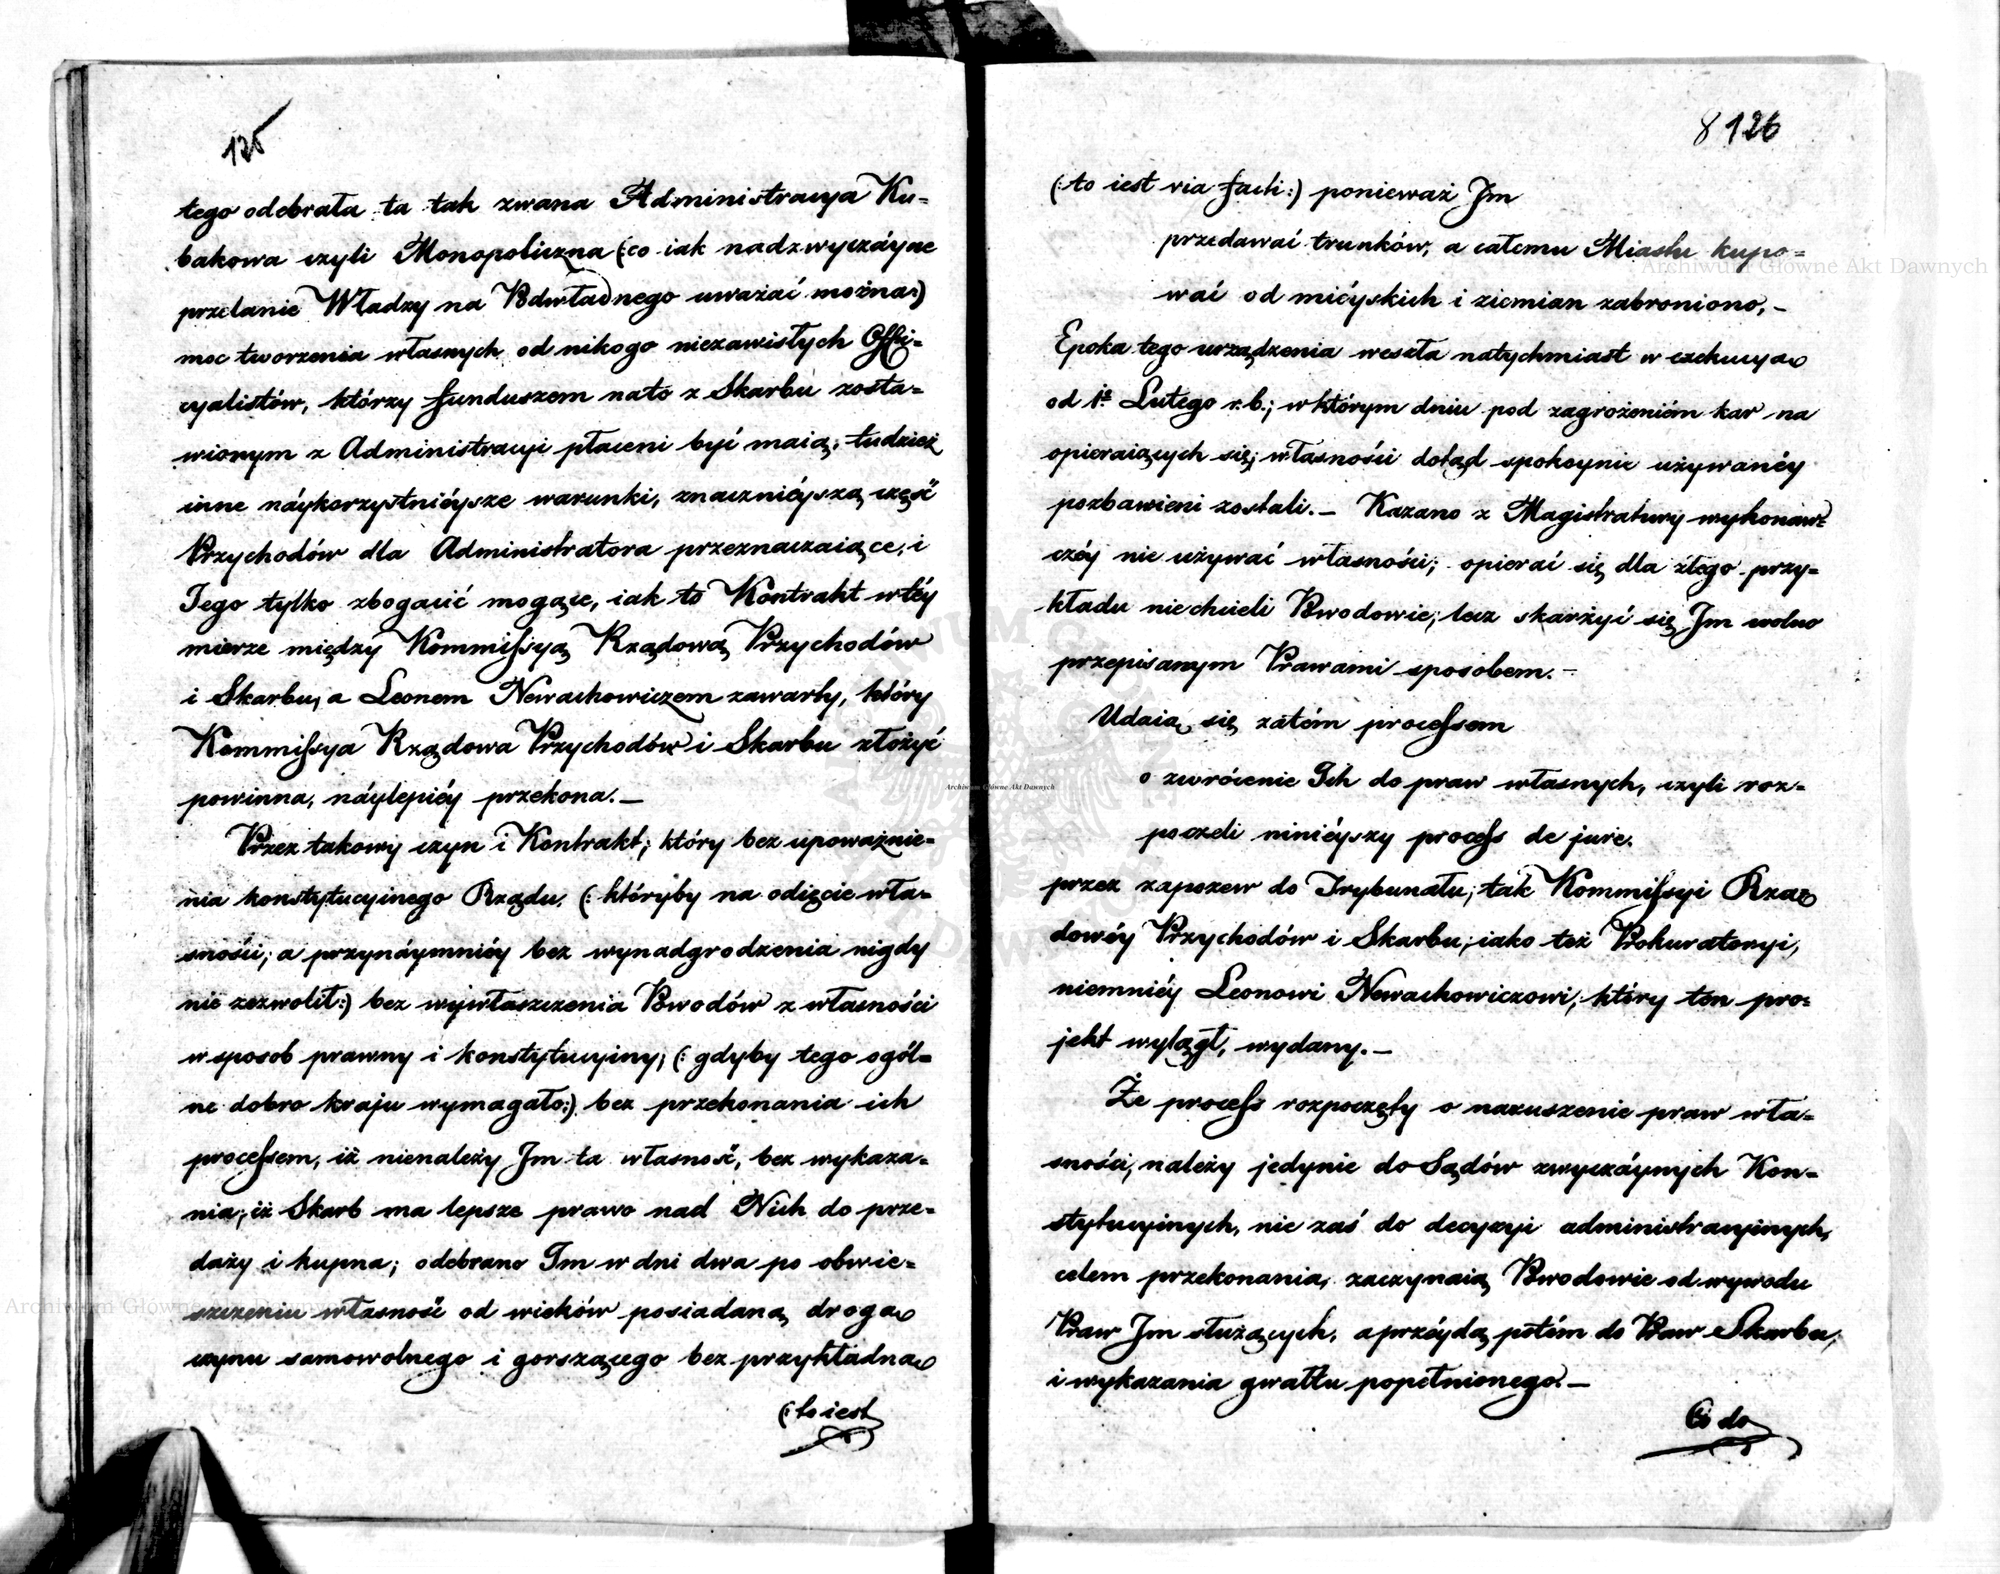 125
tego odebrała ta tak zwana Administracya Ku=
bakowa czyli Monopoliczna (:co iak nadzwyczáyne
przelanie Władzy na Podwładnego uważać można:)
moc tworzenia własnych od nikogo niezawisłych Offi=
cyalistów, którzy funduszem nato z Skarbu zosta=
wionym z Administracyi płaceni być maią; tudzież
inne náykorzystniéysze warunki, znaczniéyszą część
Przychodów dla Administratora przeznaczaiące, i
Jego tylko zbogacić mogące, iak to Kontrakt w téy
mierze między Kommissyą Rządową Przychodów
i Skarbu, a Leonem Newachowiczem zawarty, który
Kommissya Rządowa Przychodów i Skarbu złożyć
powinna, náylepiéy przekona.—
Przez takowy czyn i Kontrakt; który bez upoważnie=
nia konstytucyinego Rządu, (: któryby na odięcie wła=
sności; a przynáymniéy bez wynadgrodzenia nigdy
nie zezwolił:) bez wywłaszczenia Powodów z własności
w sposob prawny i konstytucyiny; (: gdyby tego ogól=
ne dobro kraju wymagało:) bez przekonania ich
processem, iż nienależy Jm ta własność, bez wykaza=
nia; iż Skarb ma lepsze prawo nad Nich do prze=
daży i kupna; odebrano Im w dni dwa po obwie=
szczeniu własność od wieków posiadaną drogą
czynu samowolnego i gorszącego bez przykładną
(: to iest
8 126
(: to iest via facti:) ponieważ Jm
przedawać trunków, a całemu Miastu kupo=
wać od miéyskich i ziemian zabroniono,—
Epoka tego urządzenia weszła natychmiast w exekucyą
od 1º Lutego r.b.; w którym dniu pod zagrożeniém kar na
opieraiących się; własności dotąd spokoynie używanéy
pozbawieni zostali.— Kazano z Magistratury wykonaw=
czéy nie używać własności; opierać się dla złego przy=
kładu nie chcieli Powodowie; lecz skarżyć się Jm wolno
przepisanym Prawami sposobem.—
Udaią się zatém processem
o zwrócenie Ich do praw własnych, czyli roz=
poczeli niniéyszy process de jure.
przez zapozew do Trybunału; tak Kommissyi Rzą=
dowéy Przychodów i Skarbu; iako też Prokuratoryi,
niemniéy Leonowi Newachowiczowi; który ten pro=
jekt wylągł, wydany.—
Że process rozpoczęty o naruszenie praw wła=
sności; należy jedynie do Sądów zwyczáynych Kon=
stytucyinych, nie zaś do decyzyi administracyinych,
celem przekonania, zaczynaią Powodowie od wywodu
Praw Jm służących, a przéydą potém do Praw Skarbu,
i wykazania gwałtu popełnionego.—
Co do
Archiwum Główne Akt Dawnych
Archiwum Główne Akt Dawnych
Archiwum Główne Akt Dawnych